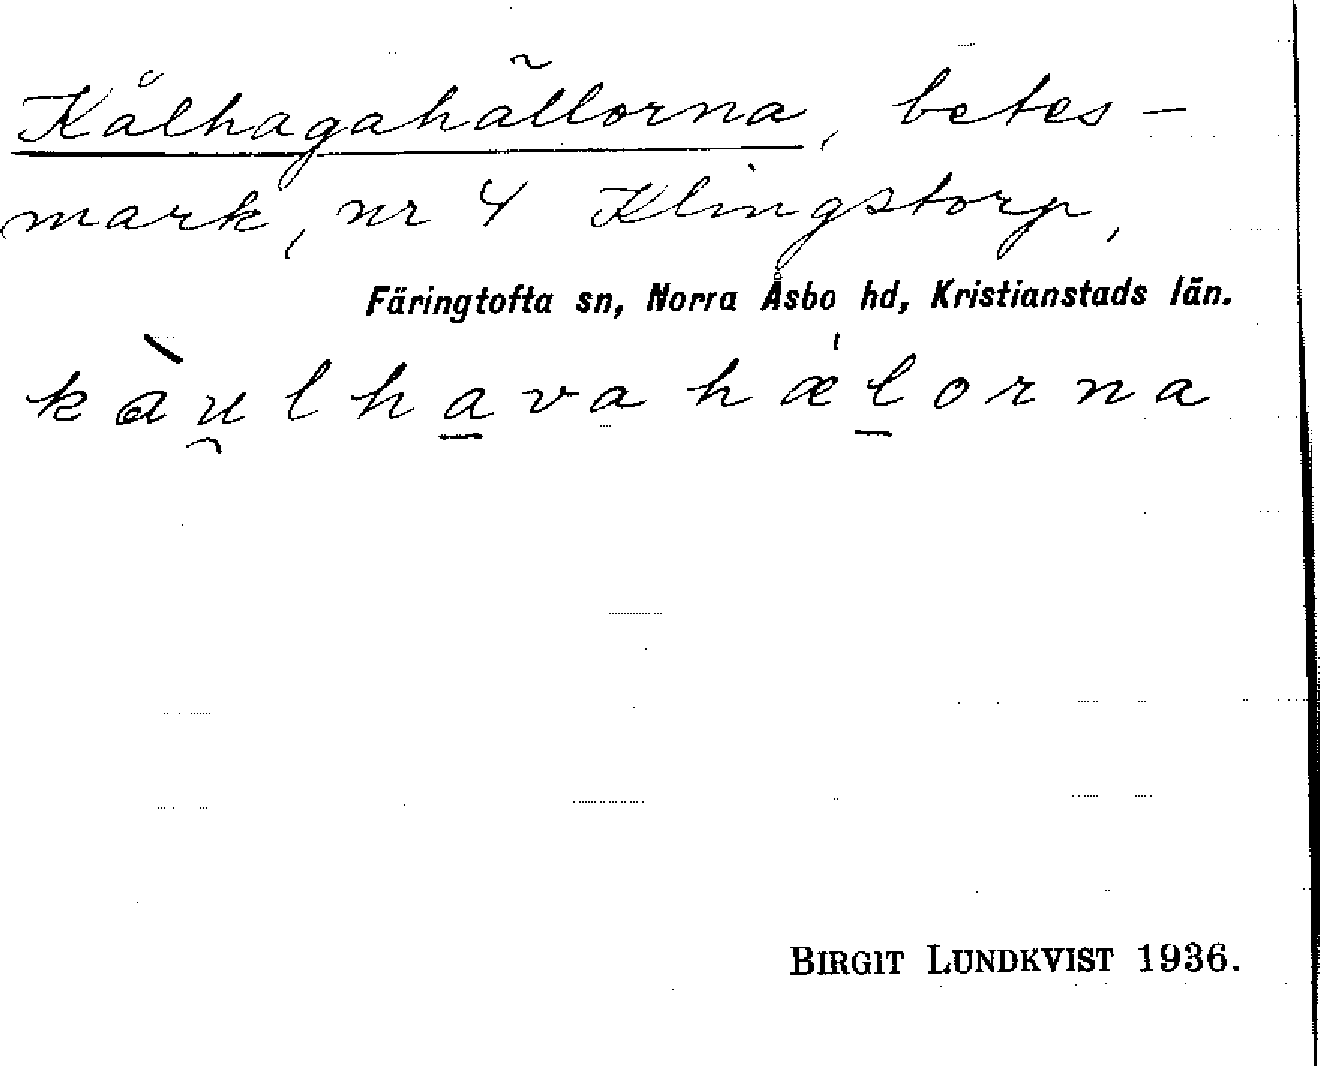 Kålhagahällorna, betes-
mark, nr 4 Klingstorp,
Färingtofta sn, Norra Åsbo hd, Kristianstads län.
kàu̯lhava hæ̍lorna
BIRGIT LUNDKVIST 1936.